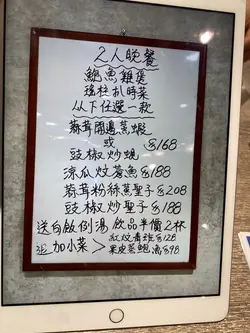 2人晚餐
鮑魚雞煲
瑤柱扒時菜
以下任選一款
蒜茸開邊蒸蝦
或 $168
豉椒炒蜆
涼瓜炆蒼魚 $188
蒜茸粉絲蒸聖子 $208
豉椒炒聖子 $188
送自啟例湯 飲品半價2杯
加小菜 > 紅炆斑 $128
果皮蒸鮑魚 $98